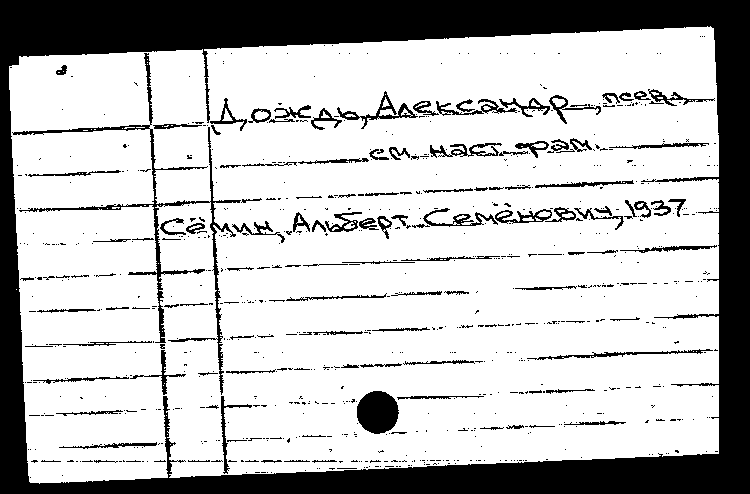 Дождь, Александр, псевд.
см. наст. фам.
Сёмин, Альберт Семёнович, 1937